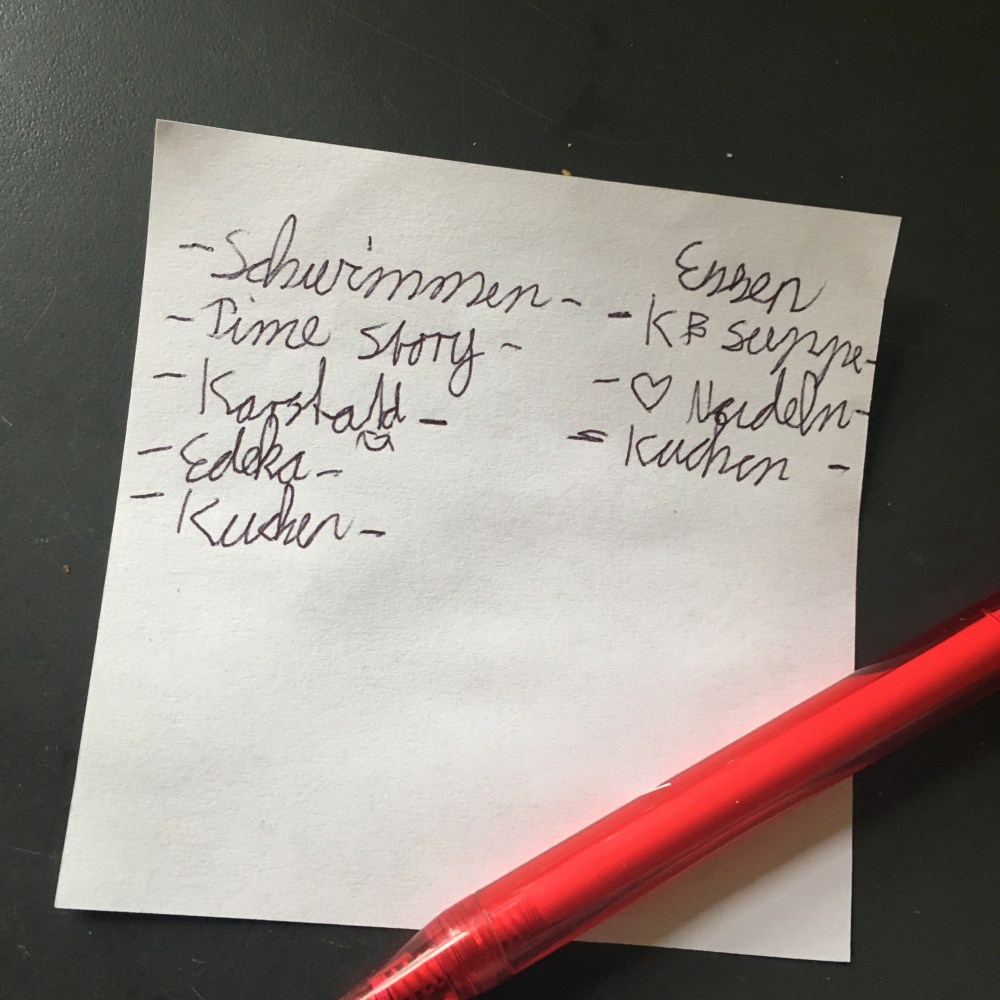 - Schwimmen -
- Time Story -
- Karstadt -
- Edeka -
- Kuchen -
Essen
- KB Suppe -
- ♡ Nudeln -
- Kuchen -